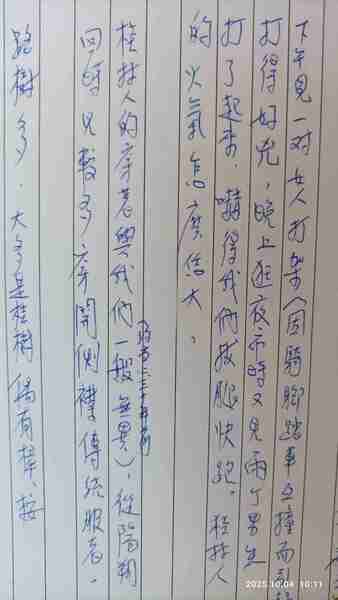 下午見一对女人打架(因騎腳踏車互撞而引
打得好兇,晚上逛夜市時又見兩个男生
打了起來.嚇得我們拔腿快跑。桂林人
的火氣怎麼這大.
桂林人的穿着與我們一般無異),從陽朔
(約市二三十年前
回時見較多穿開側襟傳統服者.
路樹多.大多是桂樹偶有樟、桉
2025.10.04 10:11